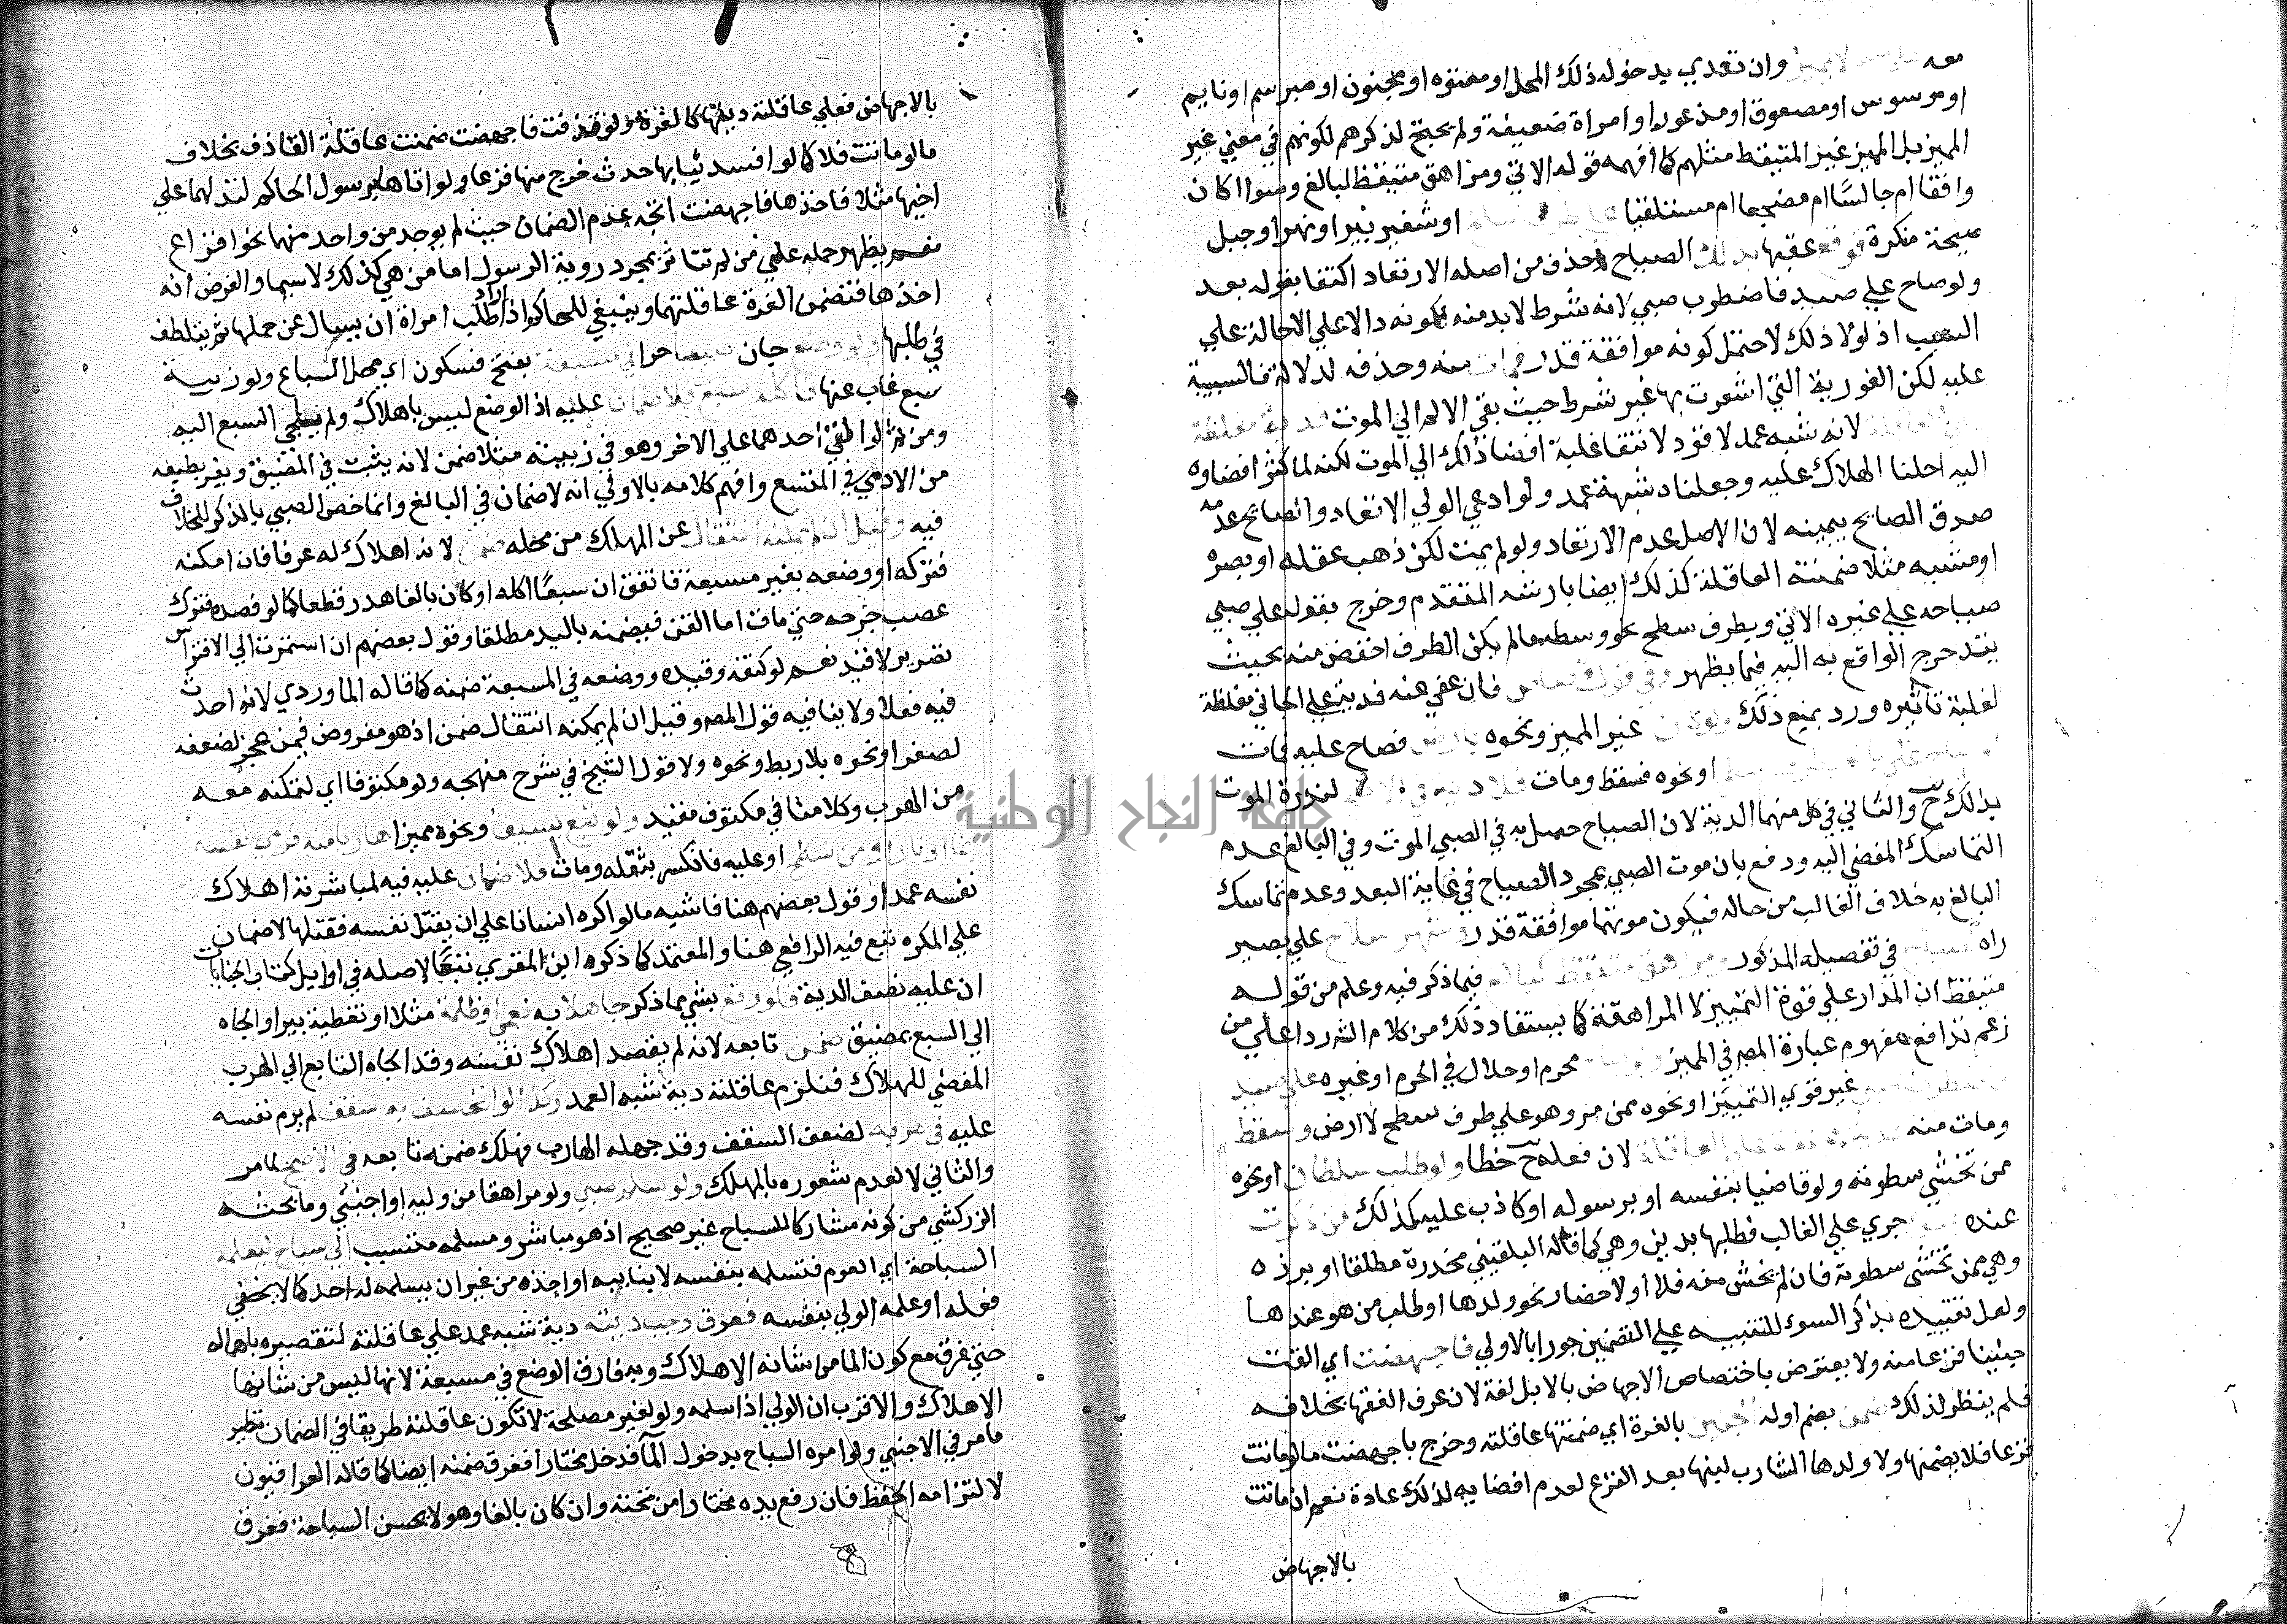 معه وان تعدي بدخوله ذلك المحل او معتوه او مجنون او مبرسم او نايم
او موسوس او مصعوق او مذعور او امراة ضعيفة ولم يحتج لذكرهم لكونهم في معني غير
المميز بل المميز غير المتيقظ مثلهم كما افهمه قوله الاتي ومراهق متيقظ لبالغ وسوا اكان
واقفا ام جالسا ام مضطجعا ام مستلقيا او شفير بير او نهر او جبل
صيحة منكرة فوقع عقبها بذلك الصياح وحذف من اصله الارتعاد اكتفا بقوله بعد
ولو صاح علي صيد فاضطرب صبي لانه شرط لابد منه لكونه دالا علي الاحالة علي
السبب اذ لولا ذلك لاحتمل كونه موافقة قدر فمات منه وحذفه لدلالة فا السببية
عليه لكن الفورية التي اشعرت بها غير شرط حيث بقي الالم الي الموت فدية مغلظة
لانه شبه عمد لا قود لانتفا غلبة افضا ذلك الي الموت لكنه لما كثر افضاوه
اليه احلنا الهلاك عليه وجعلناه شبه عمد ولو ادعي الولي الارتعاد والصايح عدمه
صدق الصايح بيمينه لان الاصل عدم الارتعاد ولو لم يمت لكن ذهب عقله او بصره
او مشيه مثلا ضمنته العاقلة كذلك ايضا بارشه المتقدم وخرج بقوله علي صبي
صياحه علي غيره الاتي وبطرف سطح نحو وسطه ما لم يكن الطرف اخفض منه بحيث
يتدحرج الواقع به اليه فيما يظهر وفي قول قصاص فان عفي عنه فدية علي الجاني مغلظة
لغلبة تاثيره ورد بمنع ذلك غير المميز ونحوه بارض فصاح عليه فمات
او نحوه فسقط ومات فلا دية في الاصح لندرة الموت
بذلك ح والثاني في كل منهما الدية لان الصياح حصل به في الصبي الموت وفي البالغ عدم
التماسك المفضي اليه ودفع بان موت الصبي بمجرد الصياح في غاية البعد وعدم تماسك
البالغ به خلاف الغالب من حاله فيكون موتهما موافقة قدر وشهر سلاح علي بصير
راه في تفصيله المذكور ومراهق متيقظ كبالغ فيما ذكر فيه وعلم من قوله
متيقظ ان المدار علي قوة التمييز لا المراهقة كما يستفاد ذلك من كلام الشرردا علي من
زعم تدافع مفهوم عبارة المصر في المميز محرم او حلال في الحرم او غيره علي صيد
غير قوي التمييز او نحوه ممن مر وهو علي طرف سطح لا ارض وسقط
ومات منه العاقلة لان فعله ح خطا ولو طلب سلطان او نحوه
ممن تخشي سطوته ولو قاضيا بنفسه او برسوله او كاذب عليه كذلك من ذكرت
عنده جري علي الغالب فطلبها بدين وهي كما قاله البلقيني مخدرة مطلقا او برزه
وهي ممن تخشي سطوته فان لم يخش منه فلا او لاحضار نحو ولدها او طلب من هو عندها
ولعل تقييده بذكر السوء للتنبيه علي التضمين جورا بالاولي فاجهضت اي القت
جنينا فزعا منه ولا يعترض باختصاص الاجهاض بالابل لغة لان عرف الفقها بخلافه
فلم ينظر لذلك ضمن بضم اوله الجنين بالغرة اي ضمنتها عاقلته وخرج باجهضت ما لو ماتت
فزعا فلا يضمنها ولا ولدها الشارب لبنها بعد الفزع لعدم افضايه لذلك عادة نعم ان ماتت
بالاجهاض
بالاجهاض فعلي عاقلته ديتها كالغرة ولو قذفت فاجهضت ضمنت عاقلة القاذف بخلاف
ما لو ماتت فلا كما لو افسد ثيابها حدث خرج منها فزعا ولو اتاها برسول الحاكم لتدلهما علي
اخيها مثلا فاخذها فاجهضت اتجه عدم الضمان حيث لم يوجد من واحد منهما نحو افزاع
نعم يظهر حمله علي من لم تتاثر بمجرد روية الرسول اما من هي كذلك لاسيما والفرض انه
اخذها فتضمن الغرة عاقلتهما وينبغي للحاكم اذا اراد طلب امراة ان يسال عن حملها ثم يتلطف
في طلبها ولو وضع جان صبيا حرا في مسبعة بفتح فسكون اي محل السباع ولو زبية
سبع غاب عنها فاكله سبع فلا ضمان عليه اذ الوضع ليس باهلاك ولم يلجي السبع اليه
ومن ثم لو القي احدهما علي الاخر وهو في زبية مثلا ضمن لانه يثبت في المضيق وينفر بطبعه
من الادمي في المتسع وافهم كلامه بالاولي انه لا ضمان في البالغ وانما خص الصبي بالذكر للخلاف
فيه وقيل ان لم يمكنه انتقال عن المهلك من محله ضمن لانه اهلاك له عرفا فان امكنه
فتركه او وضعه بغير مسبعة فاتفق ان سبعا اكله او كان بالغا هدر قطعا كما لو فصده فترك
عصب جرحه حتي مات اما القن فيضمنه باليد مطلقا وقول بعضهم ان استمرت الي الافتراس
تصوير لا قيد نعم لو كتفه وقيده ووضعه في المسبعة ضمنه كما قاله الماوردي لانه احدث
فيه فعلا ولا ينافيه قول المصر وقيل ان لم يمكنه انتقال ضمن اذ هو مفروض فيمن عجز لضعفه
لصغر او نحوه بلا ربط ونحوه ولا قول الشيخ في شرح منهجه ولو مكتوفا اي لتمكنه معه
من الهرب وكلامنا في مكتوف مقيد ولو تبع بسيف ونحوه مميزا هاربا منه فرمي نفسه
بما او نار او من سطح او عليه فانكسر بثقله ومات فلا ضمان عليه فيه لمباشرته اهلاك
نفسه عمدا وقول بعضهم هنا فاشبه ما لو اكره انسانا علي ان يقتل نفسه فقتلها لا ضمان
علي المكره تبع فيه الرافعي هنا والمعتمد كما ذكره ابن المقري تبعا لاصله في اوايل كتاب الجنايات
ان عليه نصف الدية ولو وقع بشي مما ذكر جاهلا به لعمي او ظلمة مثلا او تغطية بير او الجاه
الي السبع بمضيق ضمن تابعه لانه لم يقصد اهلاك نفسه وقد الجاه التابع الي الهرب
المفضي للهلاك فتلزم عاقلته دية شبه العمد وكذا لو انخسف به سقف لم يرم نفسه
عليه في هربه لضعف السقف وقد جهله الهارب فهلك ضمنه تابعه في الاصح لما مر
والثاني لا لعدم شعوره بالمهلك ولو سلم صبي ولو مراهقا من وليه او اجنبي وما بحثه
الزركشي من كونه مشاركا للسباح غير صحيح اذ هو مباشر ومسلمه متسبب الي سباح ليعلمه
السباحة اي العوم فتسلمه بنفسه لا بنايبه او اخذه من غير ان يسلمه له احد كما لا يخفي
فعله او علمه الولي بنفسه فغرق وجبت ديته دية شبه عمد علي عاقلته لتقصيره باهماله
حتي غرق مع كون الما من شانه الاهلاك وبه فارق الوضع في مسبعة لانها ليس من شانها
الاهلاك والاقرب ان الولي اذا سلمه ولو لغير مصلحة لا تكون عاقلته طريقا في الضمان نظير
ما مر في الاجنبي ولو امره السباح بدخول الما فدخل مختارا فغرق ضمنه ايضا كما قاله العراقيون
لالتزامه الحفظ فان رفع يده مختارا من تحته وان كان بالغا وهو لا يحسن السباحة فغرق
جامعة النجاح الوطنية